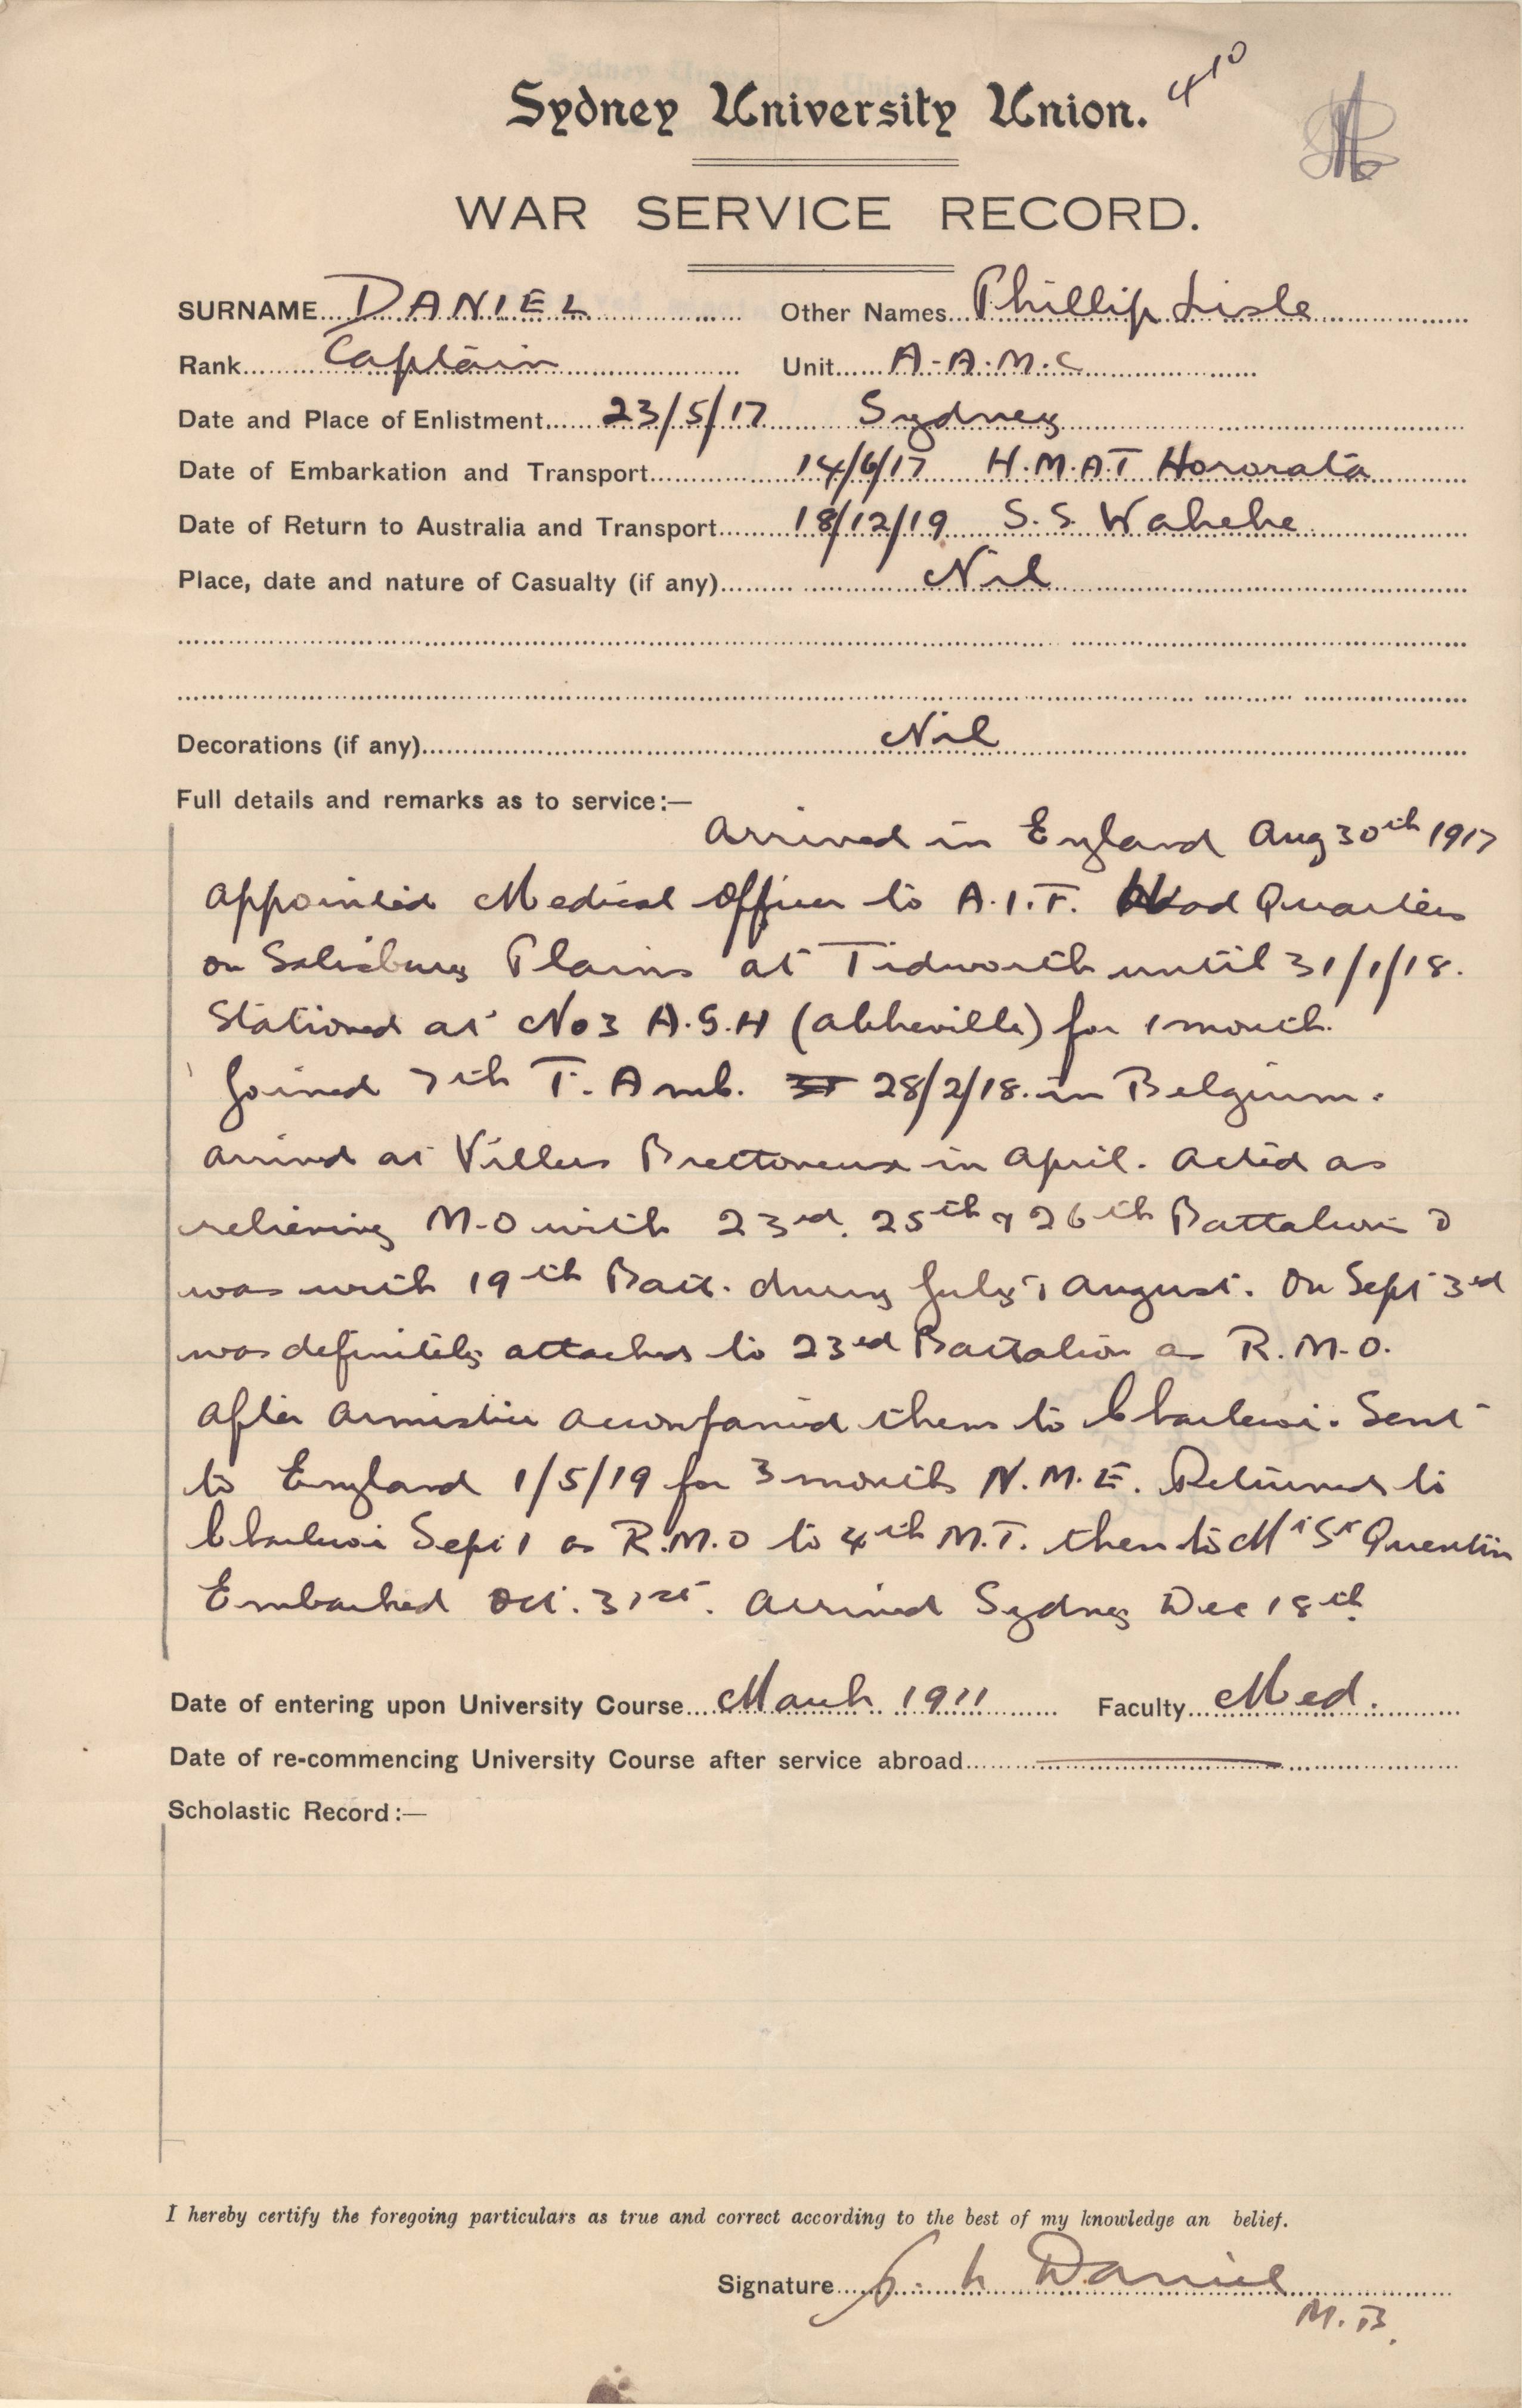 Sydney University Union. 410
WAR SERVICE RECORD.
SURNAME DANIEL Other Names Phillip Lisle
Rank Captain Unit A.A.M.C
Date and Place of Enlistment 23/5/17 Sydney
Date of Embarkation and Transport 14/6/17 H.M.A.T Hororata
Date of Return to Australia and Transport 18/12/19 S.S. Wahehe
Place, date and nature of Casualty (if any) Nil
Decorations (if any) Nil
Full details and remarks as to service:—
Arrived in England Aug 30th 1917
appointed Medical Officer to A.I.F. Head Quarters
on Salisbury Plains at Tidworth until 31/1/18.
Stationed at No 3 A.G.H (Abbeville) for 1 month.
Joined 7th F. Amb. 28/2/18. in Belgium.
Arrived at Villers Brettoneux in April. Acted as
relieving M.O with 23rd. 25th & 26th Battalions &
was with 19th Batt. during July & August. On Sept 3rd
was definitely attached to 23rd Battalion as R.M.O.
After armistice accompanied them to Charleroi. Sent
to England 1/5/19 for 3 months N.M.E. Returned to
Charleroi Sept 1 as R.M.O to 4th M.T. then to Mt St Quentin
Embarked Oct. 31st. Arrived Sydney Dec 18th
Date of entering upon University Course March 1911 Faculty Med.
Date of re-commencing University Course after service abroad
Scholastic Record:—
I hereby certify the foregoing particulars as true and correct according to the best of my knowledge an belief.
Signature P. L Daniel
M.B.